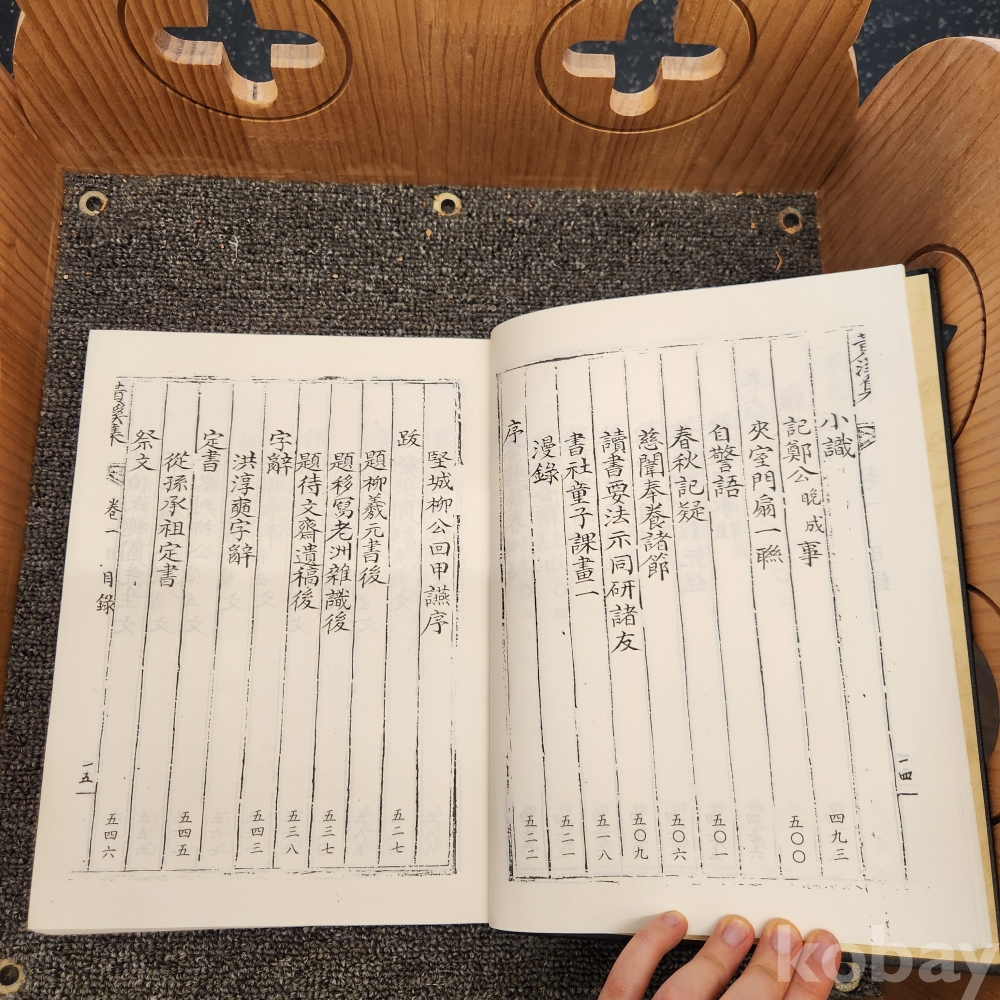 小識 四九三
記鄭公晩成事 五〇〇
夾室門扇一聯
自警語 五〇一
春秋記疑 五〇六
慈闈奉養諸節 五〇九
讀書要法示同研諸友 五一八
書社童子課畫一 五二一
漫錄 五二二
序
一四
堅城柳公回甲讌序
跋 五二七
題柳羲元書後
題移寫老洲雜識後 五三七
題待文齋遺稿後 五三八
字辭
洪淳奭字辭 五四三
定書
從孫承祖定書 五四五
祭文 五四六
集 卷一 目錄 一五
kobay